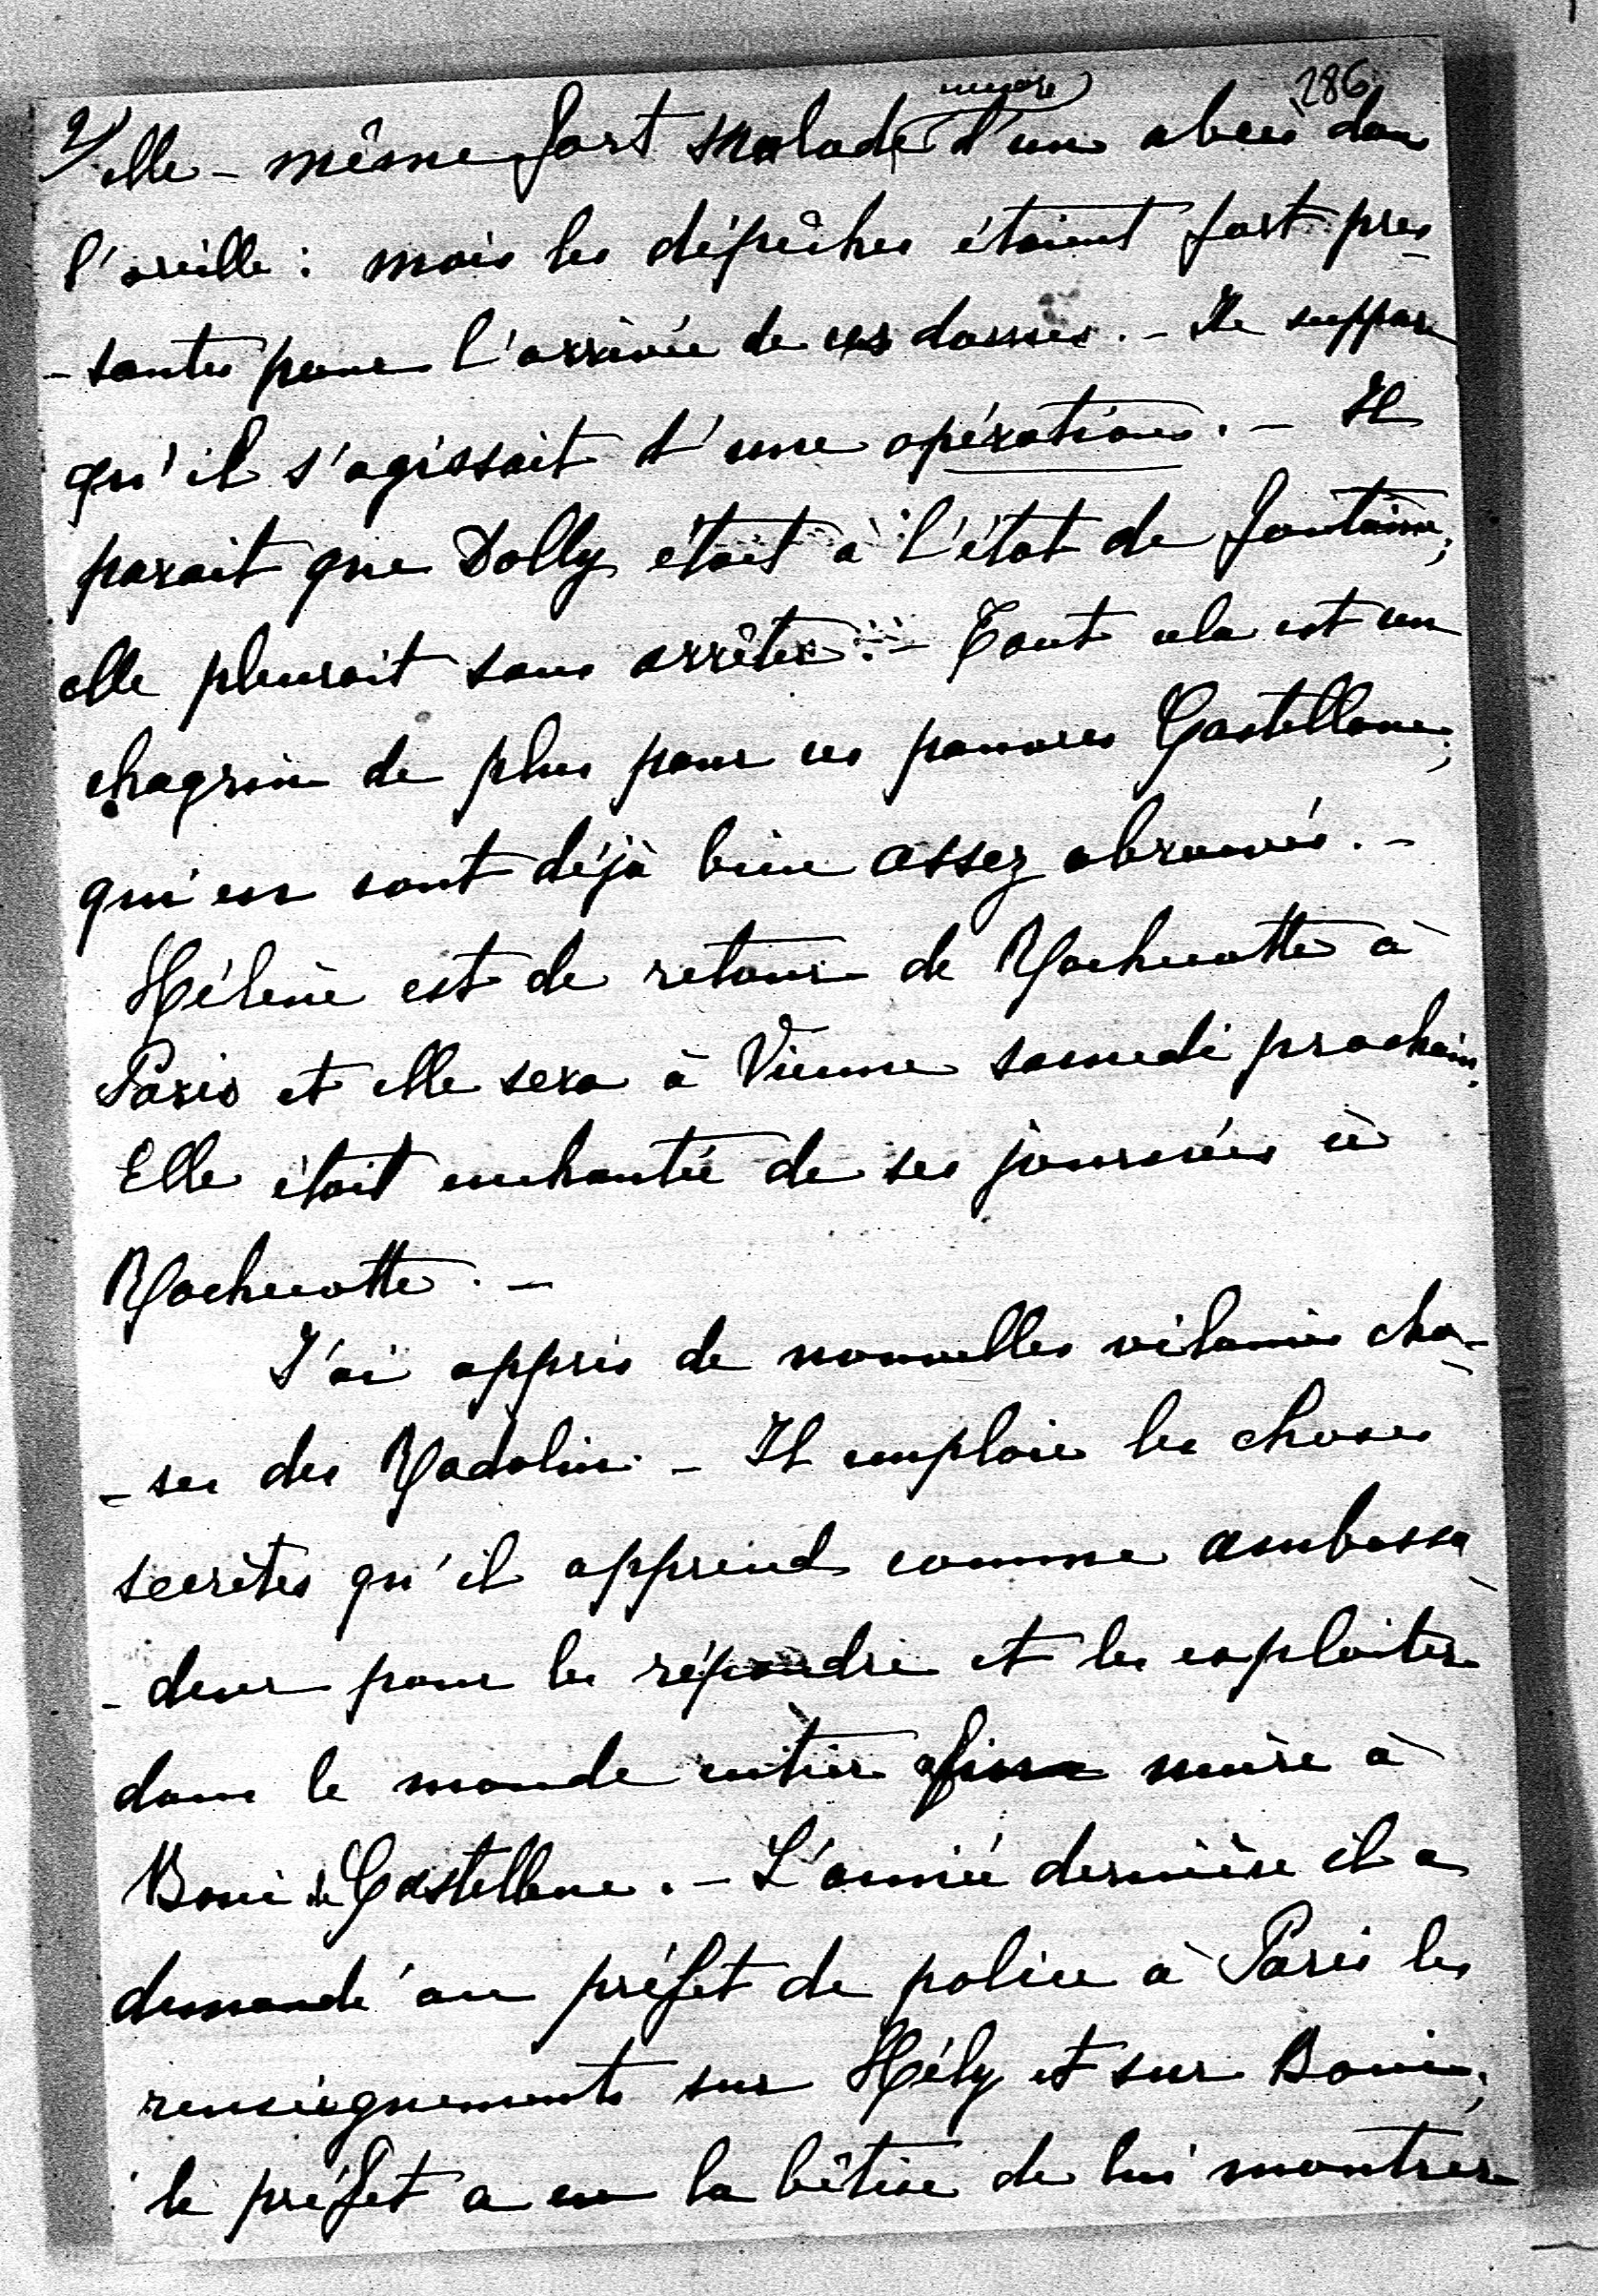 286
encore
2/ elle-même fort malade d'un abcès dans
l'oreille : mais les dépêches étaient fort pres
-santes pour l'arrivée de ces dames. - Je suppose
qu'il s'agissait d'une opération. - Il
parait que Dolly était à l'état de fontaine;
elle pleurait sans arrêter. - Tout cela est un
chagrin de plus pour ces pauvres Castellane;
qui en sont déjà bien assez abreuvés. -
Hélène est de retour de Rochecotte à
Paris et elle sera à Vienne samedi prochain.
Elle était enchantée de ses journées à
Rochecotte. -
J'ai appris de nouvelles vilaines cho-
-ses des Radolin. - Il emploie les choses
secrètes qu'il apprend comme ambassa
-deur pour les répandre et les exploiter
dans le monde entier afin nuire à
Boni de Castellane. - L'année dernière il a
demandé au préfet de police à Paris les
renseignements sur Hély et sur Boni;
le préfet a eu la bêtise de lui montrer